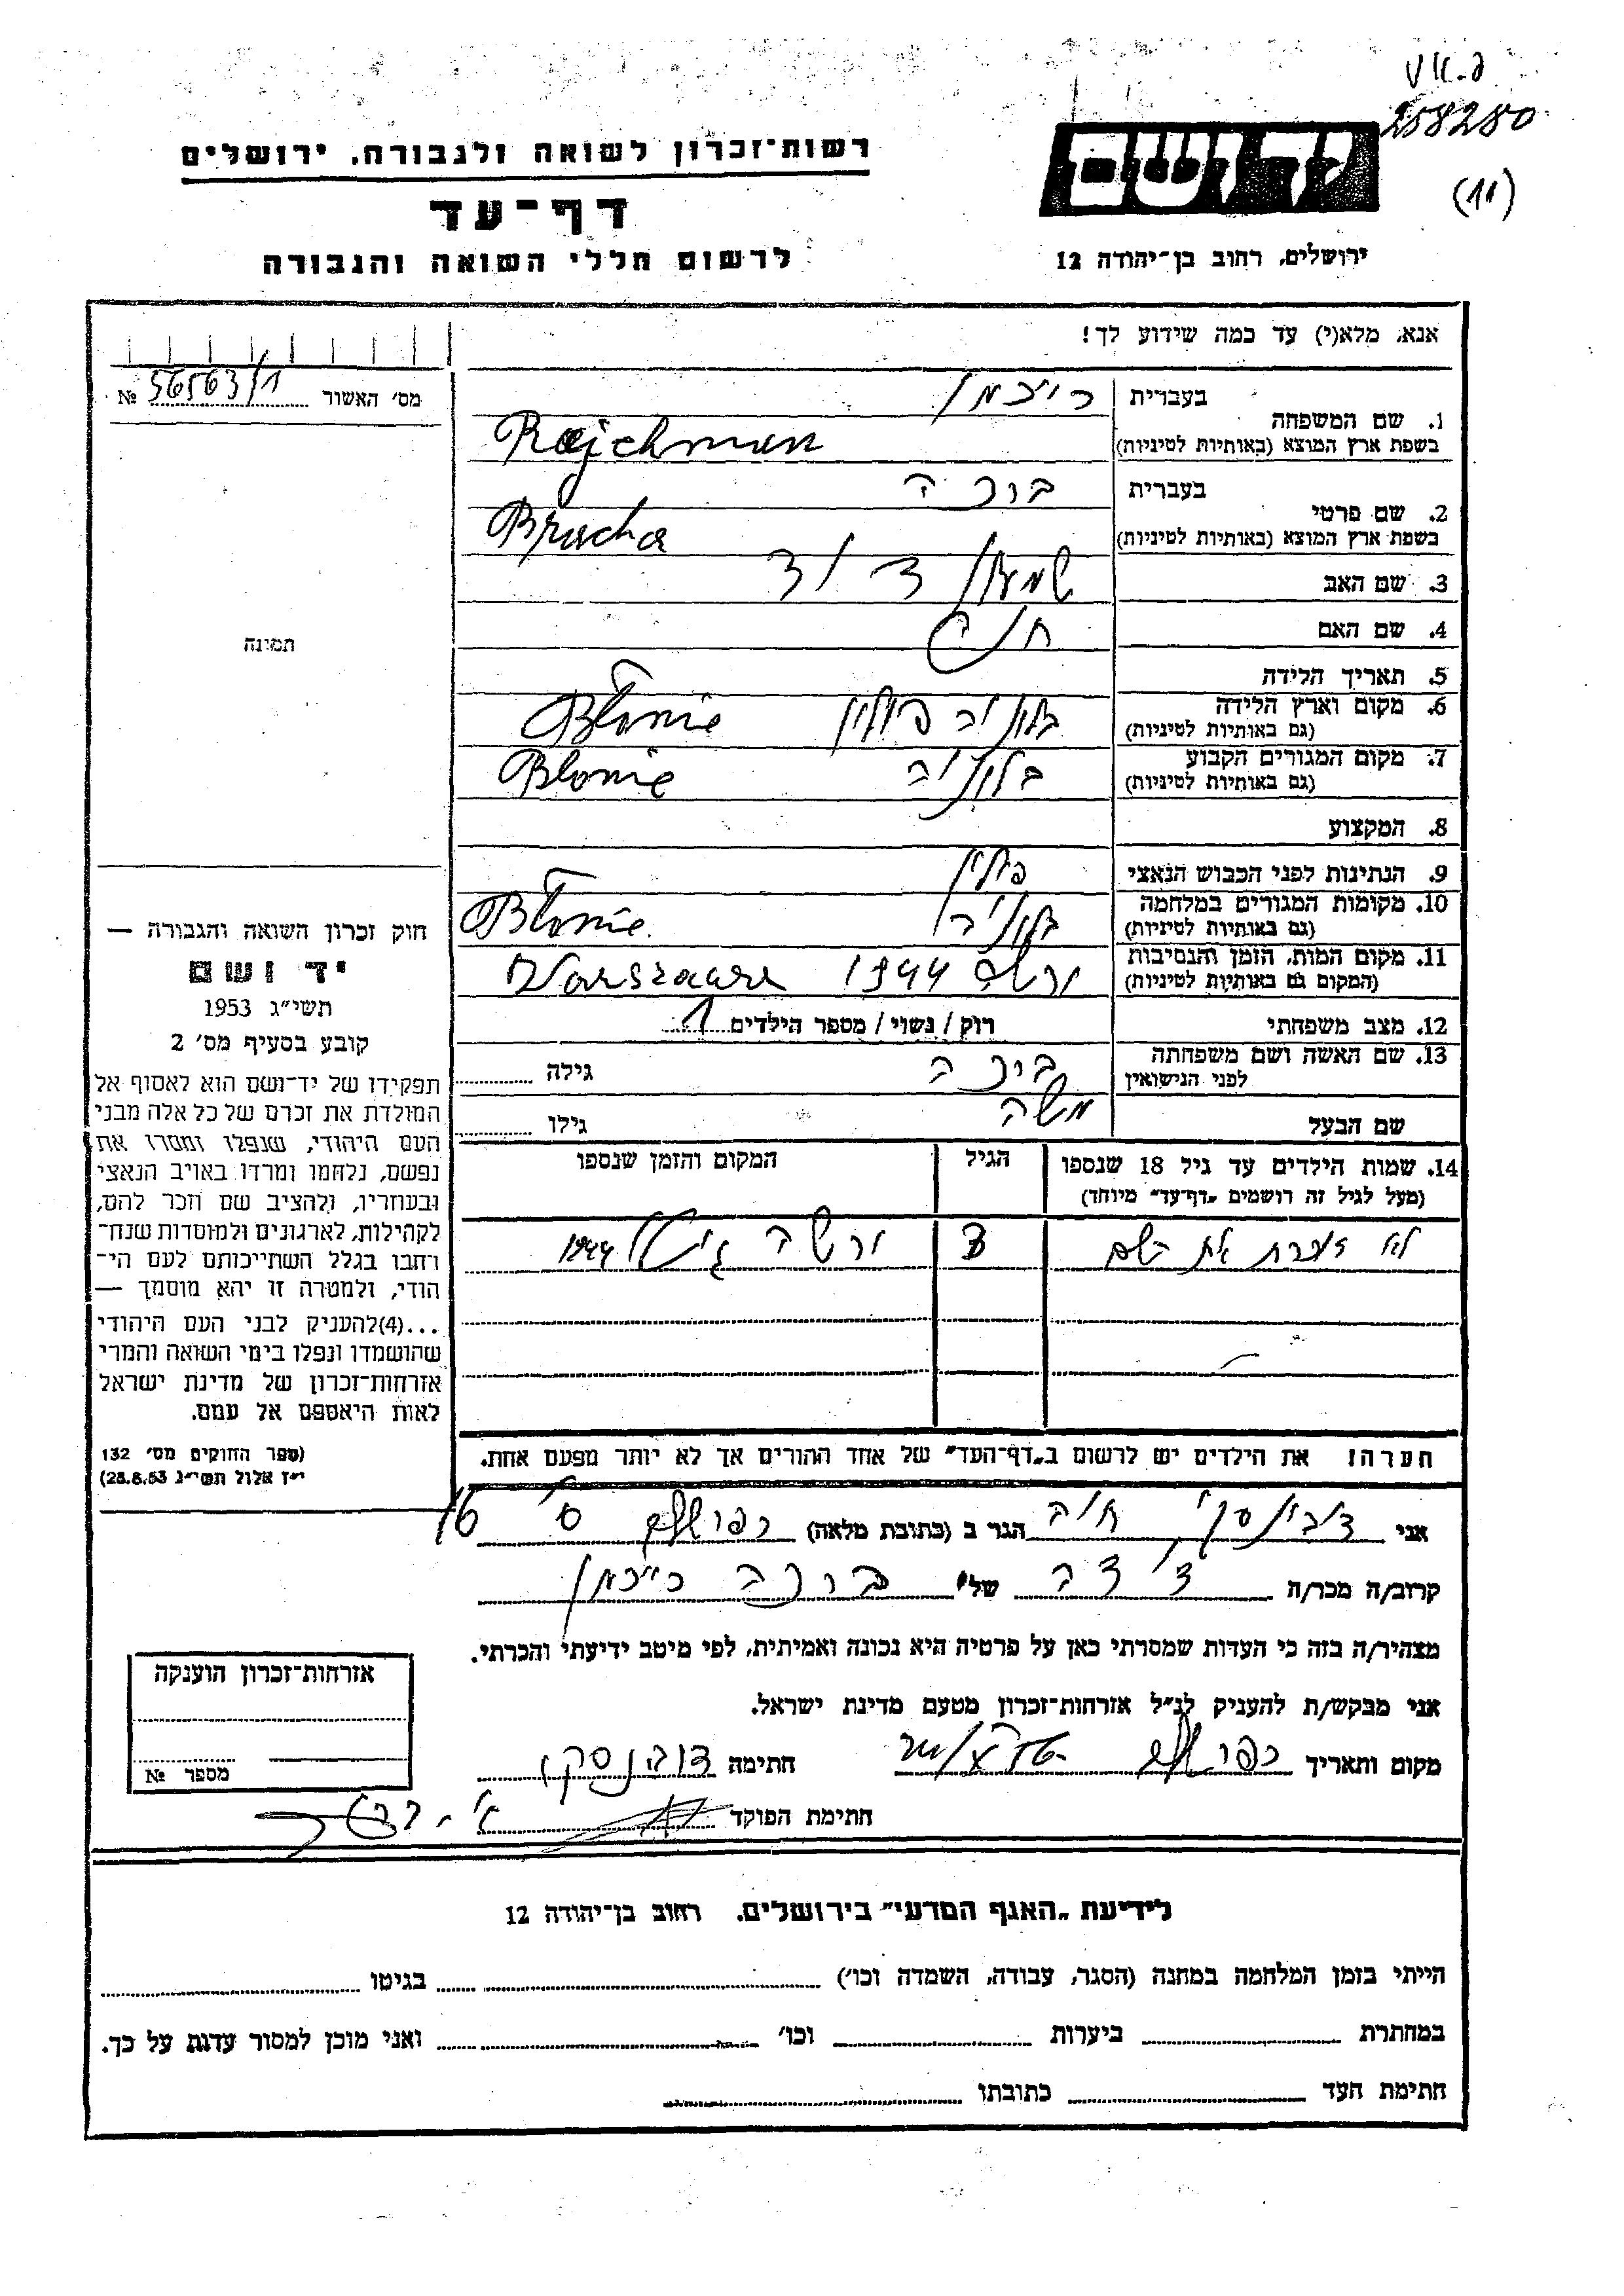 258280
(11)
יד ושם
רשות־זכרון לשואה ולגבורה, ירושלים
דף־עד
לרשום חללי השואה והגבורה
ירושלים, רחוב בן־יהודה 12
אנא, מלא(י) עד כמה שידוע לך!
מס׳ האשור 56563/1 №
1. שם המשפחה
בעברית רייכמן
בשפת ארץ המוצא (באותיות לטיניות) Rajchman
2. שם פרטי
בעברית ברכה
בשפת ארץ המוצא (באותיות לטיניות) Bracha
3. שם האב שמעון דוד
4. שם האם חיה
5. תאריך הלידה
6. מקום וארץ הלידה (גם באותיות לטיניות) בלוניה פולין Błonie
7. מקום המגורים הקבוע (גם באותיות לטיניות) בלוניה Blonie
8. המקצוע
9. הנתינות לפני הכבוש הנאצי פולין
10. מקומות המגורים במלחמה (גם באותיות לטיניות) בלוניה Błonie
11. מקום המות, הזמן והנסיבות (המקום גם באותיות לטיניות) ורשה 1944 Warszawa
12. מצב משפחתי רוק / נשוי / מספר הילדים 1
13. שם האשה ושם משפחתה לפני הנישואין ברכה גילה
שם הבעל משה גילו
14. שמות הילדים עד גיל 18 שנספו
(מעל לגיל זה רושמים „דף־עד” מיוחד)
הגיל
המקום והזמן שנספו
לא זוכרת את השם 3 ורשה גיטו 1944
הערה! את הילדים יש לרשום ב„דף־העד” של אחד ההורים אך לא יותר מפעם אחת.
תמונה
חוק זכרון השואה והגבורה —
יד ושם
תשי״ג 1953
קובע בסעיף מס׳ 2
תפקידו של יד־ושם הוא לאסוף אל
המולדת את זכרם של כל אלה מבני
העם היהודי, שנפלו ומסרו את
נפשם, נלחמו ומרדו באויב הנאצי
ובעוזריו, ולהציב שם וזכר להם,
לקהילות, לארגונים ולמוסדות שנח־
רחבו בגלל השתייכותם לעם הי־
הודי, ולמטרה זו יהא מוסמך —
...(4)להעניק לבני העם היהודי
שהושמדו ונפלו בימי השואה והמרי
אזרחות־זכרון של מדינת ישראל
לאות היאספם אל עמם.
(ספר החוקים מס׳ 132
י״ז אלול תשי״ג 28.8.53)
אני דובינסקי חיה הגר ב (כתובת מלאה) 16
קרוב/ה מכר/ה דודה של ברכה רייכמן
מצהיר/ה בזה כי העדות שמסרתי כאן על פרטיה היא נכונה ואמיתית, לפי מיטב ידיעתי והכרתי.
אני מבקש/ת להעניק לנ״ל אזרחות־זכרון מטעם מדינת ישראל.
מקום ותאריך חתימה דובינסקי
חתימת הפוקד
אזרחות־זכרון הוענקה
מספר №
לידיעת „האגף המדעי” בירושלים, רחוב בן־יהודה 12
הייתי בזמן המלחמה במחנה (הסגר, עבודה, השמדה וכו׳) בגיטו
במחתרת ביערות וכו׳ ואני מוכן למסור עדות על כך.
חתימת העד כתובתו